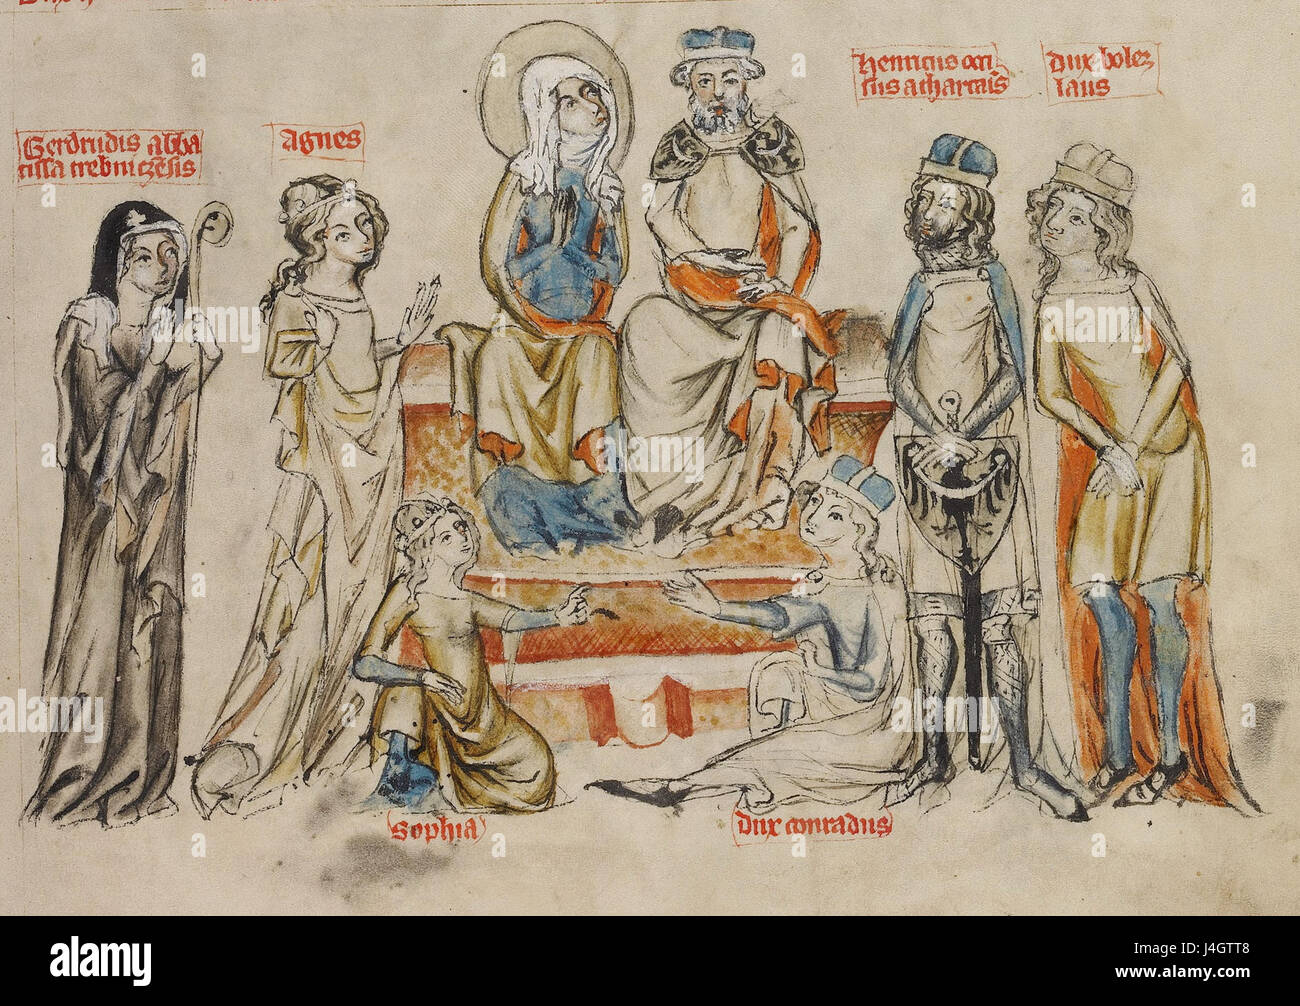 Gerdrudis abba
tissa trebniczēsis
Agnes
Henricus occi
sus a thartaīs
dux bolez
laus
Sophia
dux conradus
alamy
Image ID: J4GTT8
www.alamy.com